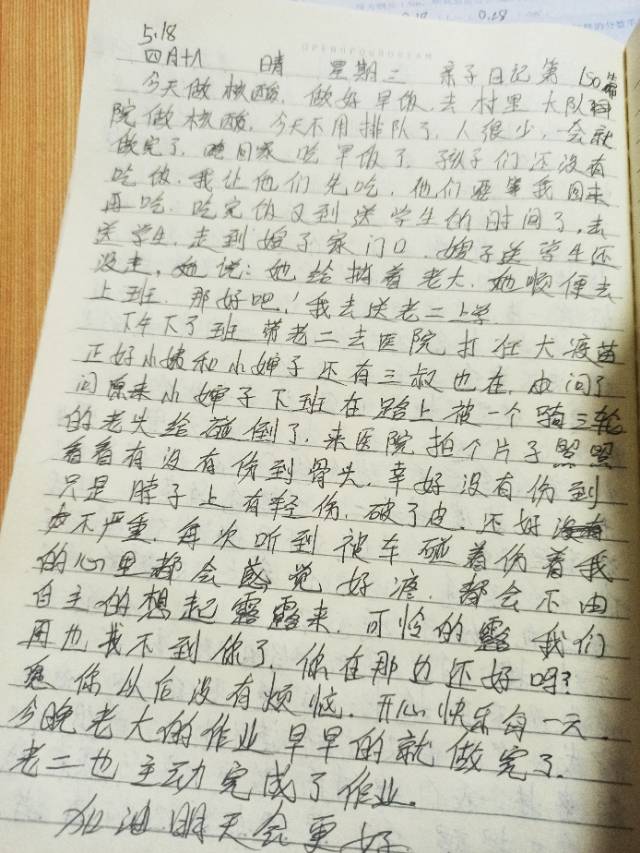 5.18
四月十八 晴 星期三 亲子日记第150篇
OPEN YOUR DREAM
今天做核酸,做好早饭,去村里大队
院做核酸,今天不用排队了,人很少,一会就
做完了,回家吃早饭了,孩子们还没有
吃饭,我让他们先吃,他们要等我回来
再吃,吃完饭又到送学生的时间了,去
送学生,走到嫂子家门口,嫂子送学生还
没走,她说:她给捎着老大,她顺便去
上班,那好吧!我去送老二上学
下午下了班带老二去医院打狂犬疫苗
正好小姨和小婶子还有三叔也在,问了
问原来小婶子下班在路上被一个骑三轮
的老头给碰倒了,来医院拍个片子照照
看看有没有伤到骨头,幸好没有伤到
只是脖子上有轻伤,破了皮,还好
不严重,每次听到被车碰着伤着我
的心里都会感觉好疼,都会不由
自主的想起露露来,可怜的露 我们
再也找不到你了,你在那边还好吗?
愿你从后没有烦恼,开心快乐每一天.
今晚老大的作业早早的就做完了.
老二也主动完成了作业.
加油明天会更好